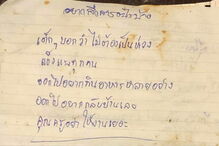 อยากสื่อสารอะไรบ้าง
เด็กๆบอกว่า ไม่ต้องเป็นห่วง
แข็งแรงทุกคน
ออกไปอยากกินอาหารหลายอย่าง
ออกไปอยากกลับบ้านเลย
คุณครูอย่าให้งานเยอะ